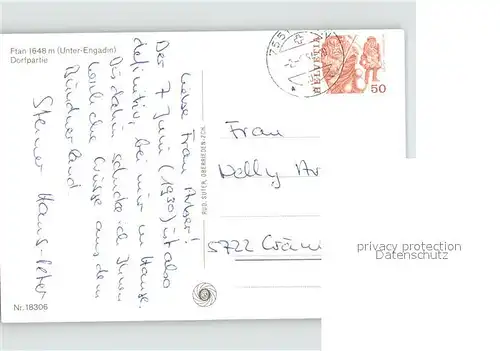 Ftan 1648 m (Unter-Engadin)
Dorfpartie
Liebe Frau
Der 7. Juni (1980) ist also
definitiv, bei mir im Hause.
Bis dahin schicke ich Ihnen
herzliche Grüsse aus dem
Bündnerland
Steiner Hans-Peter
Nr. 18306
RUD. SUTER, OBERRIEDEN-ZCH.
755
HELVETIA
50
Frau
Nelly
5722 Grän
privacy protection
Datenschutz